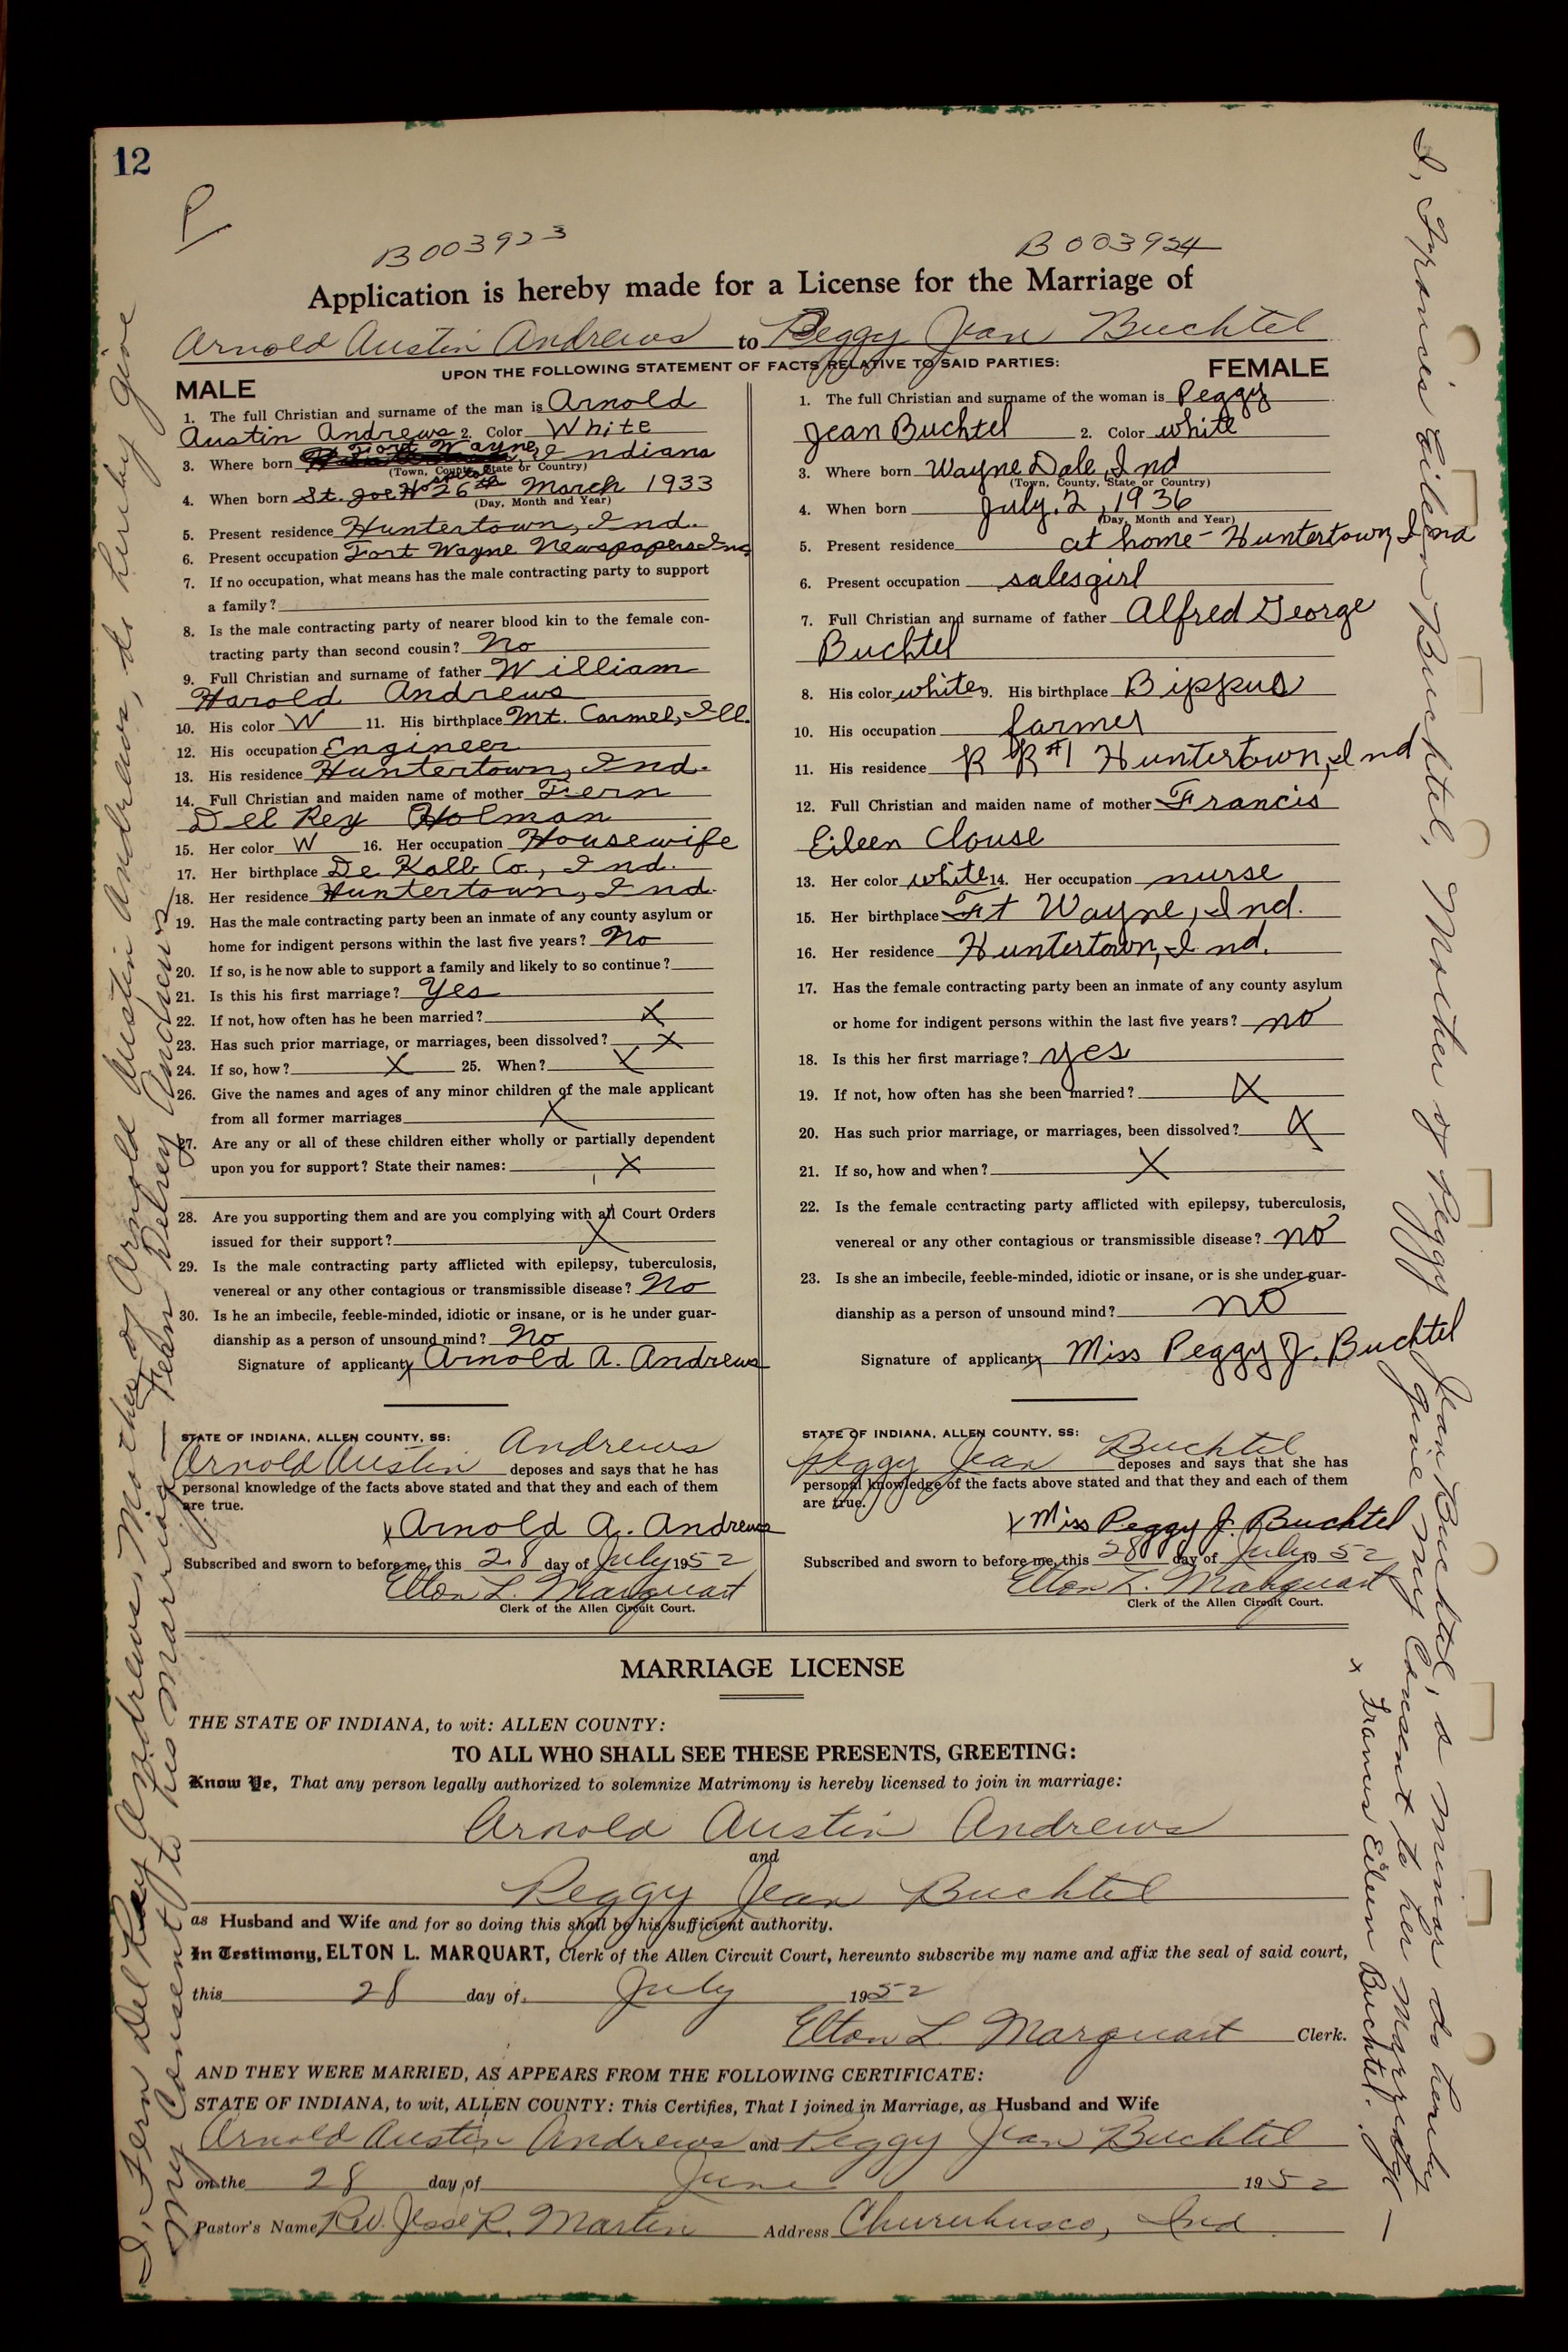 12
P
B003923
B003924
Application is hereby made for a License for the Marriage of
Arnold Austin Andrews to Peggy Jean Buchtel
UPON THE FOLLOWING STATEMENT OF FACTS RELATIVE TO SAID PARTIES:
MALE
1. The full Christian and surname of the man is Arnold
Austin Andrews 2. Color White
3. Where born Fort Wayne, Indiana
(Town, County, State or Country)
4. When born St. Joe Hospital 26th March 1933
(Day, Month and Year)
5. Present residence Huntertown, Ind.
6. Present occupation Fort Wayne Newspapers Inc
7. If no occupation, what means has the male contracting party to support
a family?
8. Is the male contracting party of nearer blood kin to the female con-
tracting party than second cousin? No
9. Full Christian and surname of father William
Harold Andrews
10. His color W 11. His birthplace Mt. Carmel, Ill.
12. His occupation Engineer
13. His residence Huntertown, Ind.
14. Full Christian and maiden name of mother Fern
Del Rey Holman
15. Her color W 16. Her occupation Housewife
17. Her birthplace De Kalb Co., Ind.
18. Her residence Huntertown, Ind.
19. Has the male contracting party been an inmate of any county asylum or
home for indigent persons within the last five years? No
20. If so, is he now able to support a family and likely to so continue?
21. Is this his first marriage? Yes
22. If not, how often has he been married? X
23. Has such prior marriage, or marriages, been dissolved? X
24. If so, how? X 25. When? X
26. Give the names and ages of any minor children of the male applicant
from all former marriages X
27. Are any or all of these children either wholly or partially dependent
upon you for support? State their names: X
28. Are you supporting them and are you complying with all Court Orders
issued for their support? X
29. Is the male contracting party afflicted with epilepsy, tuberculosis,
venereal or any other contagious or transmissible disease? No
30. Is he an imbecile, feeble-minded, idiotic or insane, or is he under guar-
dianship as a person of unsound mind? No
Signature of applicant x Arnold A. Andrews
STATE OF INDIANA, ALLEN COUNTY, SS:
Arnold Austin Andrews deposes and says that he has
personal knowledge of the facts above stated and that they and each of them
are true.
x Arnold A. Andrews
Subscribed and sworn to before me, this 28 day of July 1952
Elton L. Marquart
Clerk of the Allen Circuit Court.
FEMALE
1. The full Christian and surname of the woman is Peggy
Jean Buchtel 2. Color white
3. Where born Wayne Dale, Ind
(Town, County, State or Country)
4. When born July, 2, 1936
(Day, Month and Year)
5. Present residence at home - Huntertown, Ind
6. Present occupation salesgirl
7. Full Christian and surname of father Alfred George
Buchtel
8. His color white 9. His birthplace Bippus
10. His occupation farmer
11. His residence R R #1 Huntertown, Ind
12. Full Christian and maiden name of mother Francis
Eileen Clouse
13. Her color white 14. Her occupation nurse
15. Her birthplace Ft Wayne, Ind.
16. Her residence Huntertown, Ind.
17. Has the female contracting party been an inmate of any county asylum
or home for indigent persons within the last five years? no
18. Is this her first marriage? yes
19. If not, how often has she been married? X
20. Has such prior marriage, or marriages, been dissolved? X
21. If so, how and when? X
22. Is the female contracting party afflicted with epilepsy, tuberculosis,
venereal or any other contagious or transmissible disease? no
23. Is she an imbecile, feeble-minded, idiotic or insane, or is she under guar-
dianship as a person of unsound mind? no
Signature of applicant x Miss Peggy J. Buchtel
STATE OF INDIANA, ALLEN COUNTY, SS:
Peggy Jean Buchtel deposes and says that she has
personal knowledge of the facts above stated and that they and each of them
are true.
x Miss Peggy J. Buchtel
Subscribed and sworn to before me, this 28 day of July 1952
Elton L. Marquart
Clerk of the Allen Circuit Court.
MARRIAGE LICENSE
THE STATE OF INDIANA, to wit: ALLEN COUNTY:
TO ALL WHO SHALL SEE THESE PRESENTS, GREETING:
Know Ye, That any person legally authorized to solemnize Matrimony is hereby licensed to join in marriage:
Arnold Austin Andrews
and
Peggy Jean Buchtel
as Husband and Wife and for so doing this shall be his sufficient authority.
In Testimony, ELTON L. MARQUART, Clerk of the Allen Circuit Court, hereunto subscribe my name and affix the seal of said court,
this 28 day of July 1952
Elton L. Marquart Clerk.
AND THEY WERE MARRIED, AS APPEARS FROM THE FOLLOWING CERTIFICATE:
STATE OF INDIANA, to wit, ALLEN COUNTY: This Certifies, That I joined in Marriage, as Husband and Wife
Arnold Austin Andrews and Peggy Jean Buchtel
on the 28 day of June 1952
Pastor's Name Rev. Jesse R. Martin Address Churubusco, Ind.
I, Fern Del Rey Andrews, Mother of Arnold Austin Andrews, do hereby give
my Consent to his marriage — Fern Delrey Andrews
I, Francis Eileen Buchtel, Mother of Peggy Jean Buchtel, a minor do hereby
give my Consent to her marriage —
x Frances Eileen Buchtel.